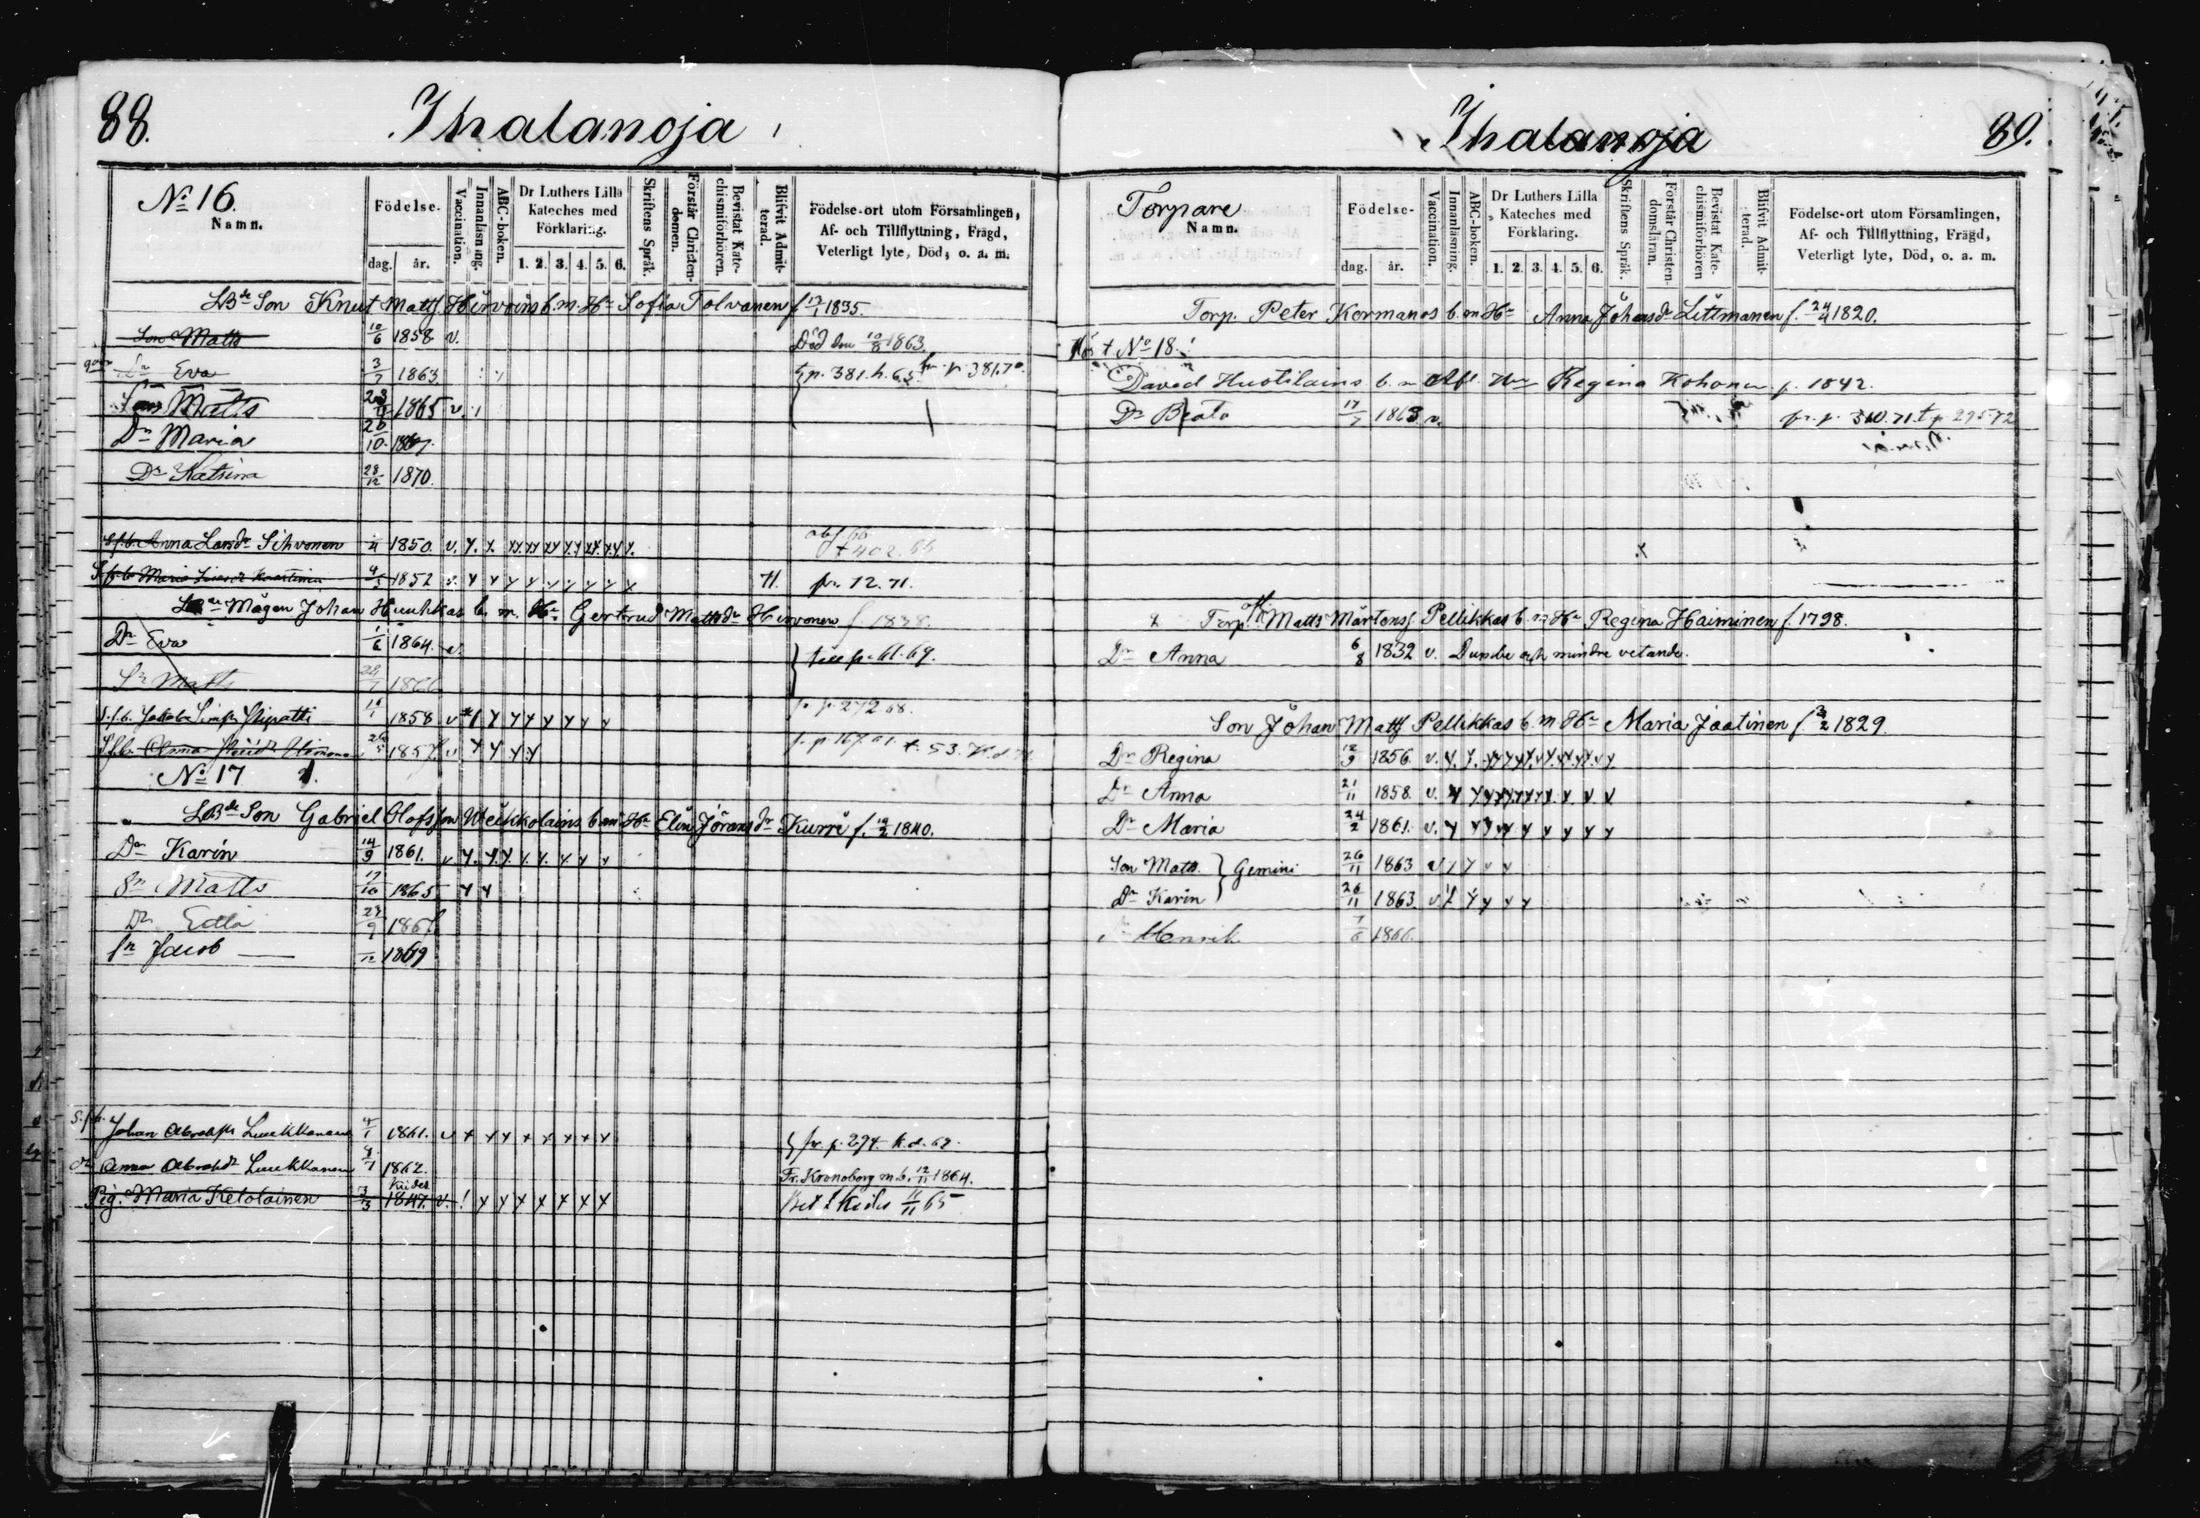 88.
Ihalanoja
No 16.
Namn.
Födelse-
dag. år.
Vaccination.
Innanläsning.
ABC-boken.
Dr Luthers Lilla Kateches med Förklaring.
1. 2. 3. 4. 5. 6.
Skriftens Språk.
Förstår Christendomen.
Bevistat Katechismiförhören.
Blifvit Admitterad.
Födelse-ort utom Församlingen,
Af- och Tillflyttning, Frägd,
Veterligt lyte, Död, o. a. m.
Son Knut Matts Hirvoins b. m. Hu Sofia Tolvanen f 1835.
Son Matts 10/6 1858 v. Död den 10/8 1863.
Dr Eva 3/7 1863 p. 381. h. 63. fr. p. 381. 70.
Son Matts 1865 v.
Dr Maria 20/10 1867.
Dr Katrina 28/12 1870.
S.f.b. Anna Larsdr Sihvonen 1850. v. y. x. 402. 66
S.f.b. Maria 1852 H. fr. 12. 71.
Mågen Johan Huuhkas b. m. Hu Gertrud Mattsdr Hirvonen f. 1838.
Dr Eva 1/6 1864. v. p. 61. 69.
Sn Matts 1866
S.f.b. 1858 v p. 272 68.
S.f.b. Anna 1857 v y y y y 53.
No 17
Son Gabriel Olofsson b m Hu Elin Jöransdr Kurri f. 1840.
Dr Karin 14/9 1861. v y. y y. y. y. y y v
Sn Matts 17/10 1865 y y
Dr Edla 1867
Sn Jacob 1869
S.f.b.
Johan Luukkanen 1861. v x y y x y x x y fr. p. 294 h. d. 69.
Dr Anna Luukkanen 1862.
Fr. Kronoborg m. b. 12/11 1864.
Kides
Pig. Maria Ketolainen 3/3 1847. v. Bet t Kides 11/11 65
Ihalanoja
89.
Torpare
Namn.
Födelse-
dag. år.
Vaccination.
Innanläsning.
ABC-boken.
Dr Luthers Lilla Kateches med Förklaring.
1. 2. 3. 4. 5. 6.
Skriftens Språk.
Förstår Christendomsläran.
Bevistat Katechismiförhören
Blifvit Admitterad.
Födelse-ort utom Församlingen,
Af- och Tillflyttning, Frägd,
Veterligt lyte, Död, o. a. m.
Torp. Peter Kormanos b. m Hu Anna Johansdr Littmanen f. 24/4 1820.
No 18.
David Huotilains b. m Hu Regina Kohonen f. 1842.
Dr Beata 17/7 1863 v. fr. p. 310. 71. t p 295. 72
Torp. Matts Mårtens Pellikkas b. m Hu Regina Haiminen f. 1798.
Dr Anna 6/8 1832 v. Dumbe och mindre vetande.
Son Johan Matts Pellikkas b. m Hu Maria Jaatinen f. 3/2 1829.
Dr Regina 12/9 1856. v. y. y.
Dr Anna 21/11 1858. v.
Dr Maria 24/2 1861. v. y
Son Matts } Gemini 26/11 1863 v
Dr Karin 26/11 1863. v
Henrik 7/6 1866.